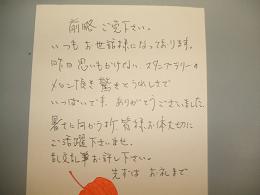 前略 ご免下さい。
いつもお世話様になっております。
昨日思いもかけない、スタンプラリーの
メロン頂き驚きとうれしさで
いっぱいです。ありがとうございました。
暑さに向かう折、皆様お体大切に
ご活躍下さいませ。
乱文乱筆お許し下さい。
先ずは お礼まで